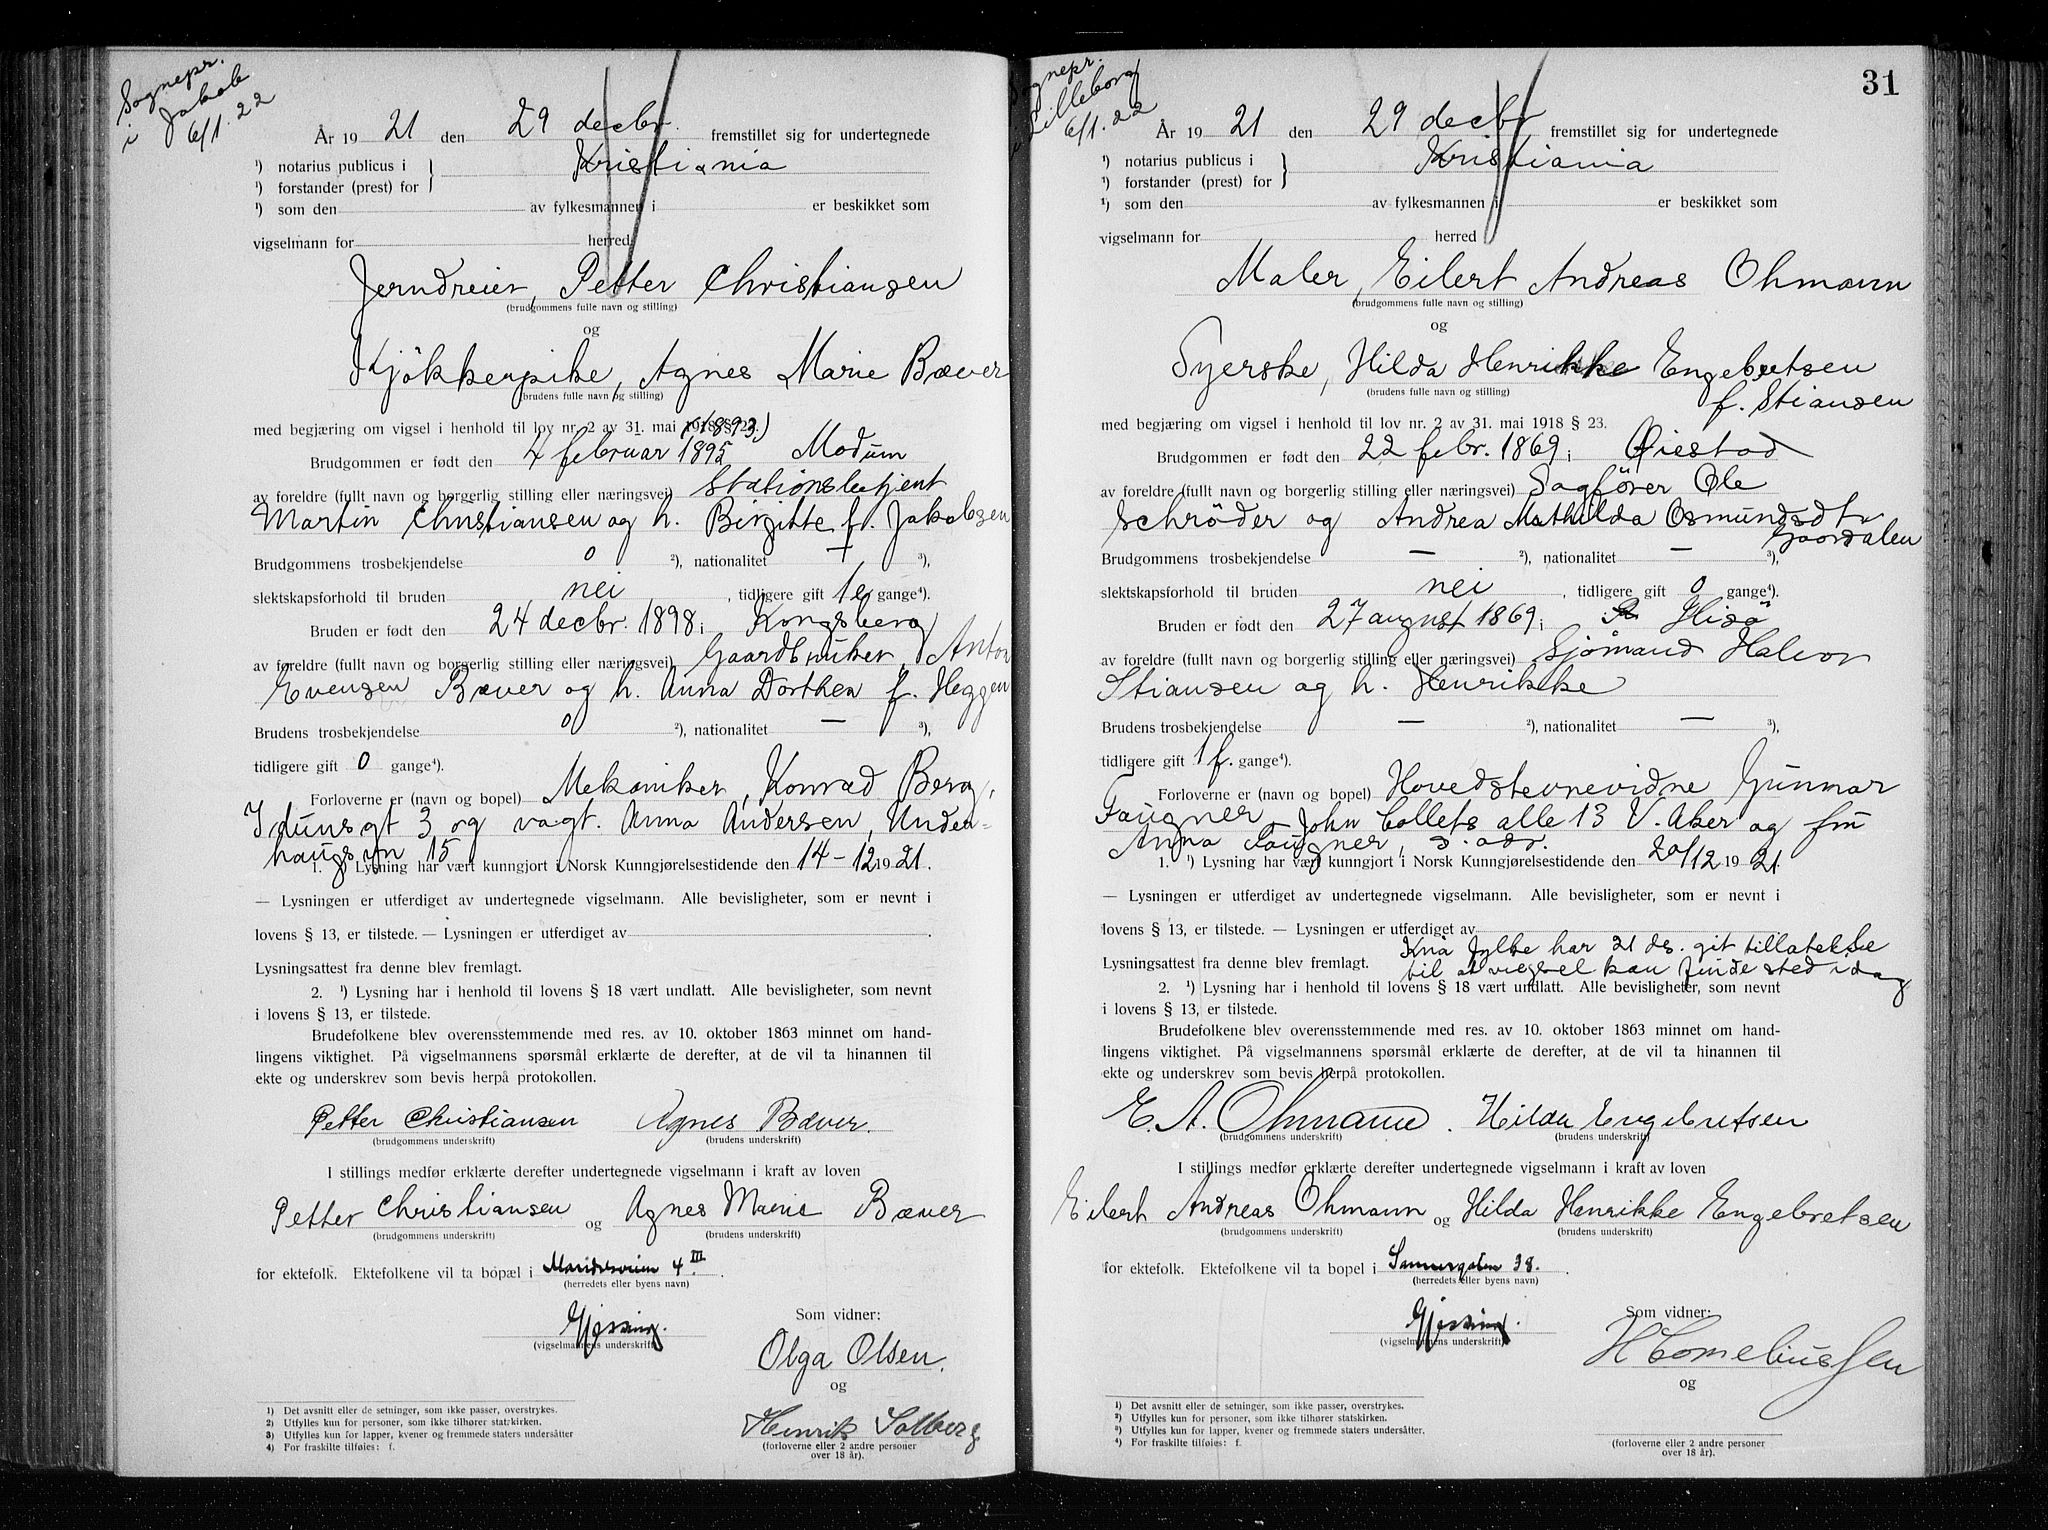 Sognepr.
i Jakob
6/1.22
År 19 21 den 29 decbr. fremstillet sig for undertegnede
¹) notarius publicus i } Kristiania
¹) forstander (prest) for
¹) som den av fylkesmannen i er beskikket som
vigselmann for herred
Jerndreier, Petter Christiansen
(brudgommens fulle navn og stilling)
og
Kjøkkenpike, Agnes Marie Bæver
(brudens fulle navn og stilling)
med begjæring om vigsel i henhold til lov nr. 2 av 31. mai 1918 § 23.
(1893)
Brudgommen er født den 4 februar 1895 Modum
av foreldre (fullt navn og borgerlig stilling eller næringsvei) Stationsbetjent
Martin Christiansen og h. Birgitte f. Jakobsen
Brudgommens trosbekjendelse 0 ²), nationalitet + ³),
slektskapsforhold til bruden nei , tidligere gift 1e gange⁴).
Bruden er født den 24 decbr. 1898 i Kongsberg
av foreldre (fullt navn og borgerlig stilling eller næringsvei) Gaardbruker Anton
Evensen Bæver og h. Anna Dorthea f. Heggen
Brudens trosbekjendelse 0 ²), nationalitet — ³),
tidligere gift 0 gange⁴).
Forloverne er (navn og bopel) Mekaniker, Konrad Berg,
Idunsgt 3 og vagt. Anna Andersen, Underhaugsvn 15
1. ¹) Lysning har vært kunngjort i Norsk Kunngjørelsestidende den 14-12 19 21.
— Lysningen er utferdiget av undertegnede vigselmann. Alle bevisligheter, som er nevnt i
lovens § 13, er tilstede. — Lysningen er utferdiget av .
Lysningsattest fra denne blev fremlagt.
2. ¹) Lysning har i henhold til lovens § 18 vært undlatt. Alle bevisligheter, som nevnt
i lovens § 13, er tilstede.
Brudefolkene blev overensstemmende med res. av 10. oktober 1863 minnet om hand-
lingens viktighet. På vigselmannens spørsmål erklærte de derefter, at de vil ta hinannen til
ekte og underskrev som bevis herpå protokollen.
Petter Christiansen Agnes Bæver.
(brudgommens underskrift) (brudens underskrift)
I stillings medfør erklærte derefter undertegnede vigselmann i kraft av loven
Petter Christiansen og Agnes Marie Bæver
(brudgommens underskrift) (brudens underskrift)
for ektefolk. Ektefolkene vil ta bopæl i Maridalsveien 4 III.
(herredets eller byens navn)
Gjessing.
(vigselmannens underskrift)
Som vidner:
Olga Olsen.
og
Henrik Solberg
(forloverne eller 2 andre personer
over 18 år).
1) Det avsnitt eller de setninger, som ikke passer, overstrykes.
2) Utfylles kun for personer, som ikke tilhører statskirken.
3) Utfylles kun for lapper, kvener og fremmede staters undersåtter
4) For fraskilte tilføies: f.
31
Sognepr.
i Lilleborg
6/1.22
År 19 21 den 29 decbr fremstillet sig for undertegnede
¹) notarius publicus i } Kristiania
¹) forstander (prest) for
¹) som den av fylkesmannen i er beskikket som
vigselmann for herred
Maler, Eilert Andreas Ohmann
(brudgommens fulle navn og stilling)
og
Syerske, Hilda Henrikke Engebretsen
(brudens fulle navn og stilling)
f. Stiansen
med begjæring om vigsel i henhold til lov nr. 2 av 31. mai 1918 § 23.
Brudgommen er født den 22 febr. 1869 i Øiestad
av foreldre (fullt navn og borgerlig stilling eller næringsvei) Sagfører Ole
Schrøder og Andrea Mathilda Osmundsdtr
Gaasdalen
Brudgommens trosbekjendelse — ²), nationalitet — ³),
slektskapsforhold til bruden nei , tidligere gift 0 gange⁴).
Bruden er født den 27 august 1869 i Hisø
av foreldre (fullt navn og borgerlig stilling eller næringsvei) Sjømand Halvor
Stiansen og h. Henrikke
Brudens trosbekjendelse — ²), nationalitet — ³),
tidligere gift 1 f. gange⁴).
Forloverne er (navn og bopel) Hovedstevnevidne Gunnar
Faugner, John Collets alle 13 V. Aker og fru
Anna Faugner, s. adr.
1. ¹) Lysning har vært kunngjort i Norsk Kunngjørelsestidende den 20/12 19 21.
— Lysningen er utferdiget av undertegnede vigselmann. Alle bevisligheter, som er nevnt i
lovens § 13, er tilstede. — Lysningen er utferdiget av
Kria fylke har 21 ds. git tillatelse
Lysningsattest fra denne blev fremlagt. til at viegsel kan finde sted idag
2. ¹) Lysning har i henhold til lovens § 18 vært undlatt. Alle bevisligheter, som nevnt
i lovens § 13, er tilstede.
Brudefolkene blev overensstemmende med res. av 10. oktober 1863 minnet om hand-
lingens viktighet. På vigselmannens spørsmål erklærte de derefter, at de vil ta hinannen til
ekte og underskrev som bevis herpå protokollen.
E. A. Ohmann. Hilda Engebretsen
(brudgommens underskrift) (brudens underskrift)
I stillings medfør erklærte derefter undertegnede vigselmann i kraft av loven
Eilert Andreas Ohmann og Hilda Henrikke Engebretsen
(brudgommens underskrift) (brudens underskrift)
for ektefolk. Ektefolkene vil ta bopel i Sannergaten 38.
(herredets eller byens navn)
Gjessing.
(vigselmannens underskrift)
Som vidner:
H Corneliussen
og
(forloverne eller 2 andre personer
over 18 år).
1) Det avsnitt eller de setninger, som ikke passer, overstrykes.
2) Utfylles kun for personer, som ikke tilhører statskirken.
3) Utfylles kun for lapper, kvener og fremmede staters undersåtter.
4) For fraskilte tilføies: f.